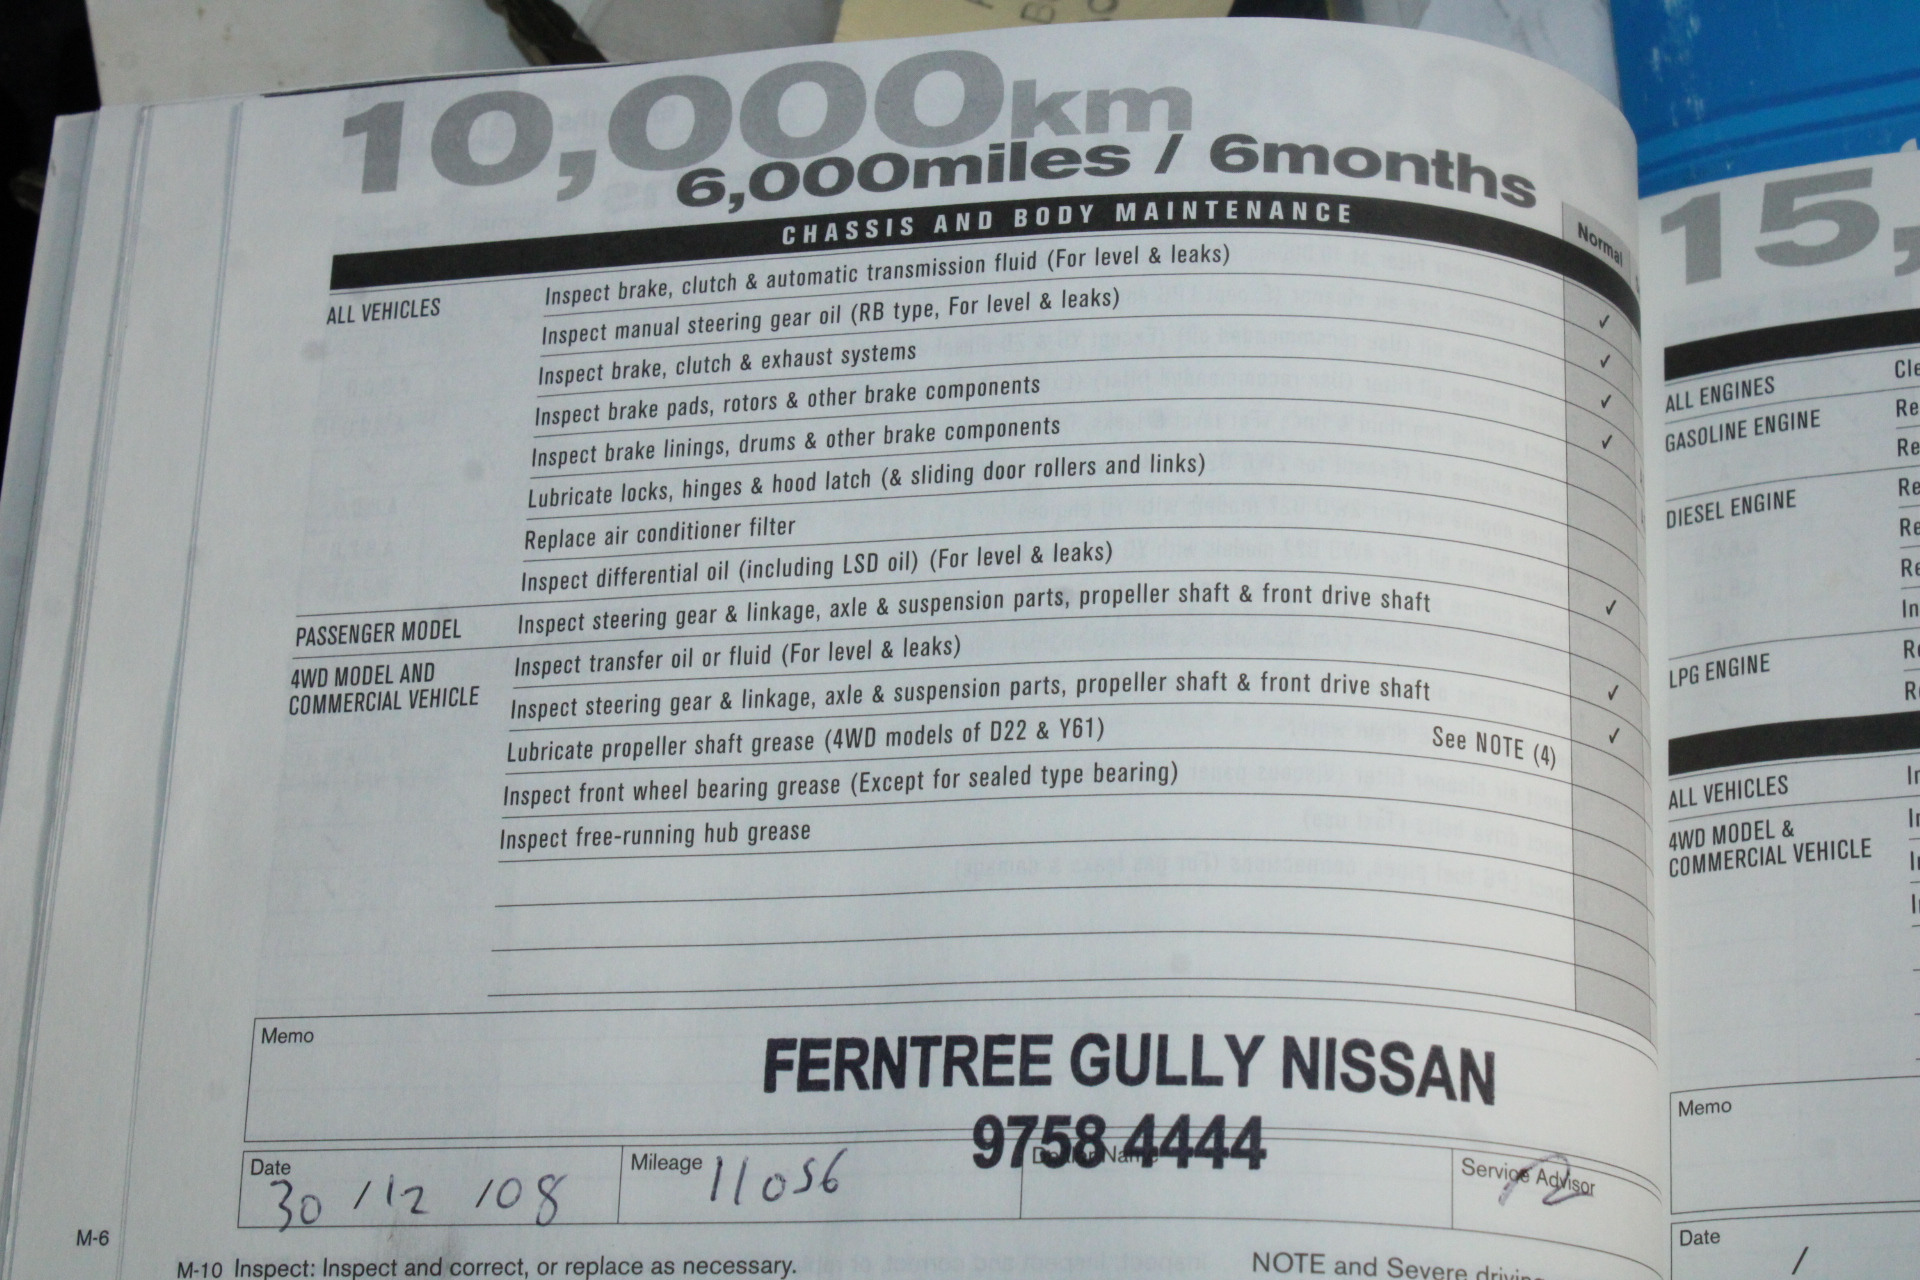 10,000km
6,000miles / 6months
CHASSIS AND BODY MAINTENANCE
Normal
ALL VEHICLES
Inspect brake, clutch & automatic transmission fluid (For level & leaks) ✓
Inspect manual steering gear oil (RB type, For level & leaks) ✓
Inspect brake, clutch & exhaust systems ✓
Inspect brake pads, rotors & other brake components ✓
Inspect brake linings, drums & other brake components
Lubricate locks, hinges & hood latch (& sliding door rollers and links)
Replace air conditioner filter
Inspect differential oil (including LSD oil) (For level & leaks) ✓
PASSENGER MODEL
Inspect steering gear & linkage, axle & suspension parts, propeller shaft & front drive shaft
4WD MODEL AND
COMMERCIAL VEHICLE
Inspect transfer oil or fluid (For level & leaks) ✓
Inspect steering gear & linkage, axle & suspension parts, propeller shaft & front drive shaft ✓
Lubricate propeller shaft grease (4WD models of D22 & Y61) See NOTE (4)
Inspect front wheel bearing grease (Except for sealed type bearing)
Inspect free-running hub grease
Memo
FERNTREE GULLY NISSAN
9758 4444
Date
30 /12 /08
Mileage 11056
Dealer Name
Service Advisor
M-6
M-10 Inspect: Inspect and correct, or replace as necessary.
NOTE and Severe
15,
ALL ENGINES
GASOLINE ENGINE
DIESEL ENGINE
LPG ENGINE
ALL VEHICLES
4WD MODEL &
COMMERCIAL VEHICLE
Memo
Date
/